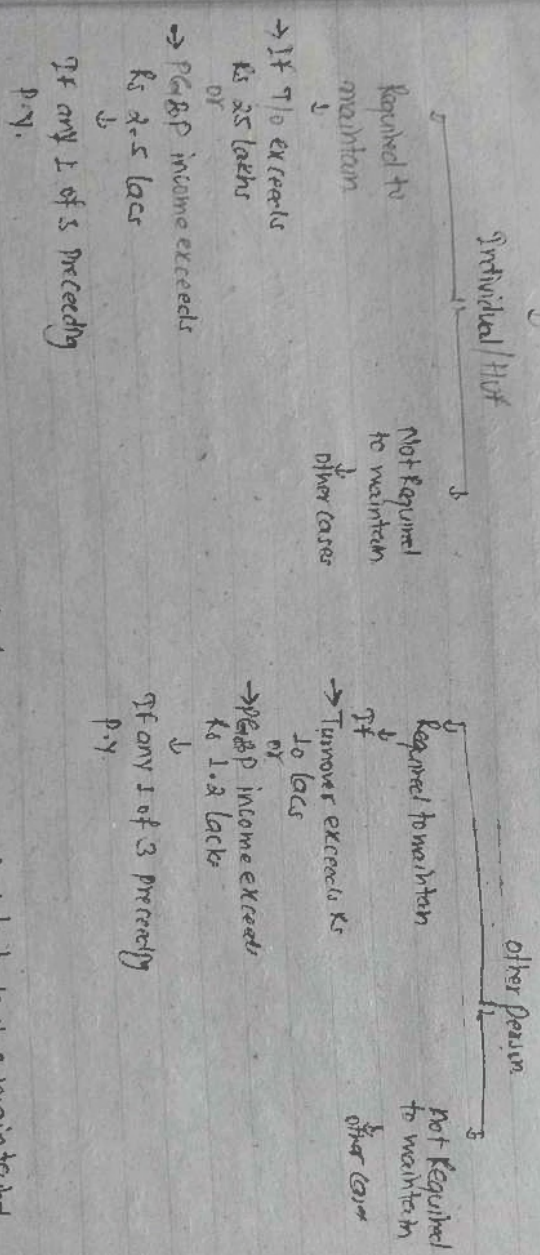 Individual/HUF
Required to
maintain
→ If T/o exceeds
Rs 25 lakhs
or
→ PGBP income exceeds
Rs 2.5 lacs
If any 1 of 3 preceeding
P.Y.
Not Required
to maintain
other cases
other Person
Required to maintain
If
→ Turnover exceeds Rs
10 lacs
or
→ PGBP income exceeds
Rs 1.2 lacks
If any 1 of 3 preceeding
P.Y.
Not Required
to maintain
other cases
maintained